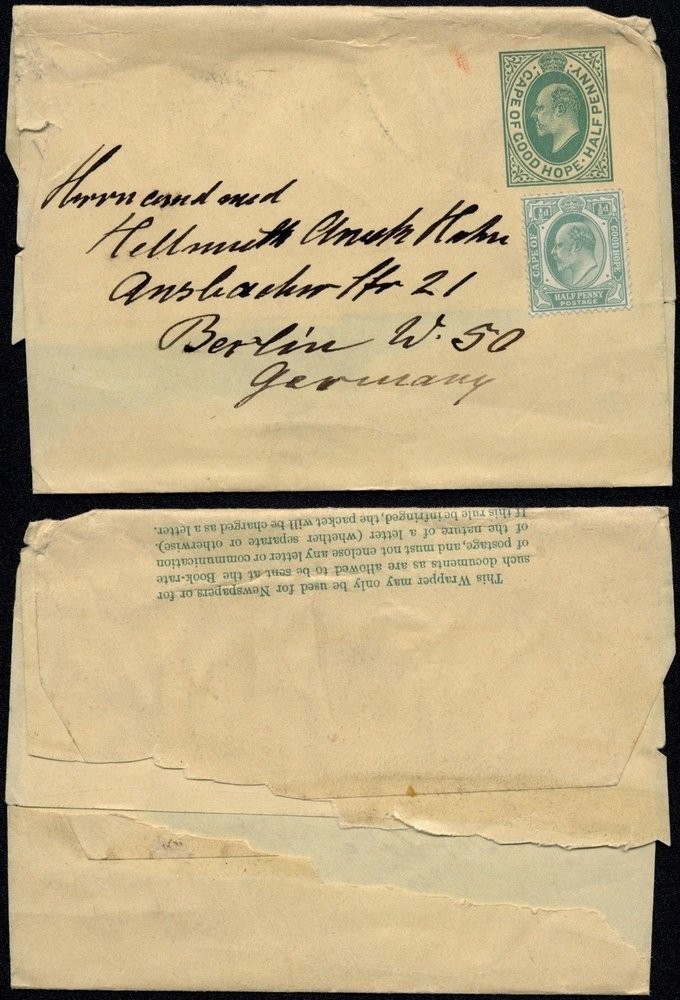 CAPE OF GOOD HOPE · HALFPENNY ·
½d ½d
CAPE OF GOOD HOPE
HALF PENNY
POSTAGE
Herrn cand med
Hellmuth Hahn
Ansbacher Str 21
Berlin W. 50
Germany
This Wrapper may only be used for Newspapers or for
such documents as are allowed to be sent at the Book-rate
of postage, and must not enclose any letter or communication
of the nature of a letter (whether separate or otherwise).
If this rule be infringed, the packet will be charged as a letter.